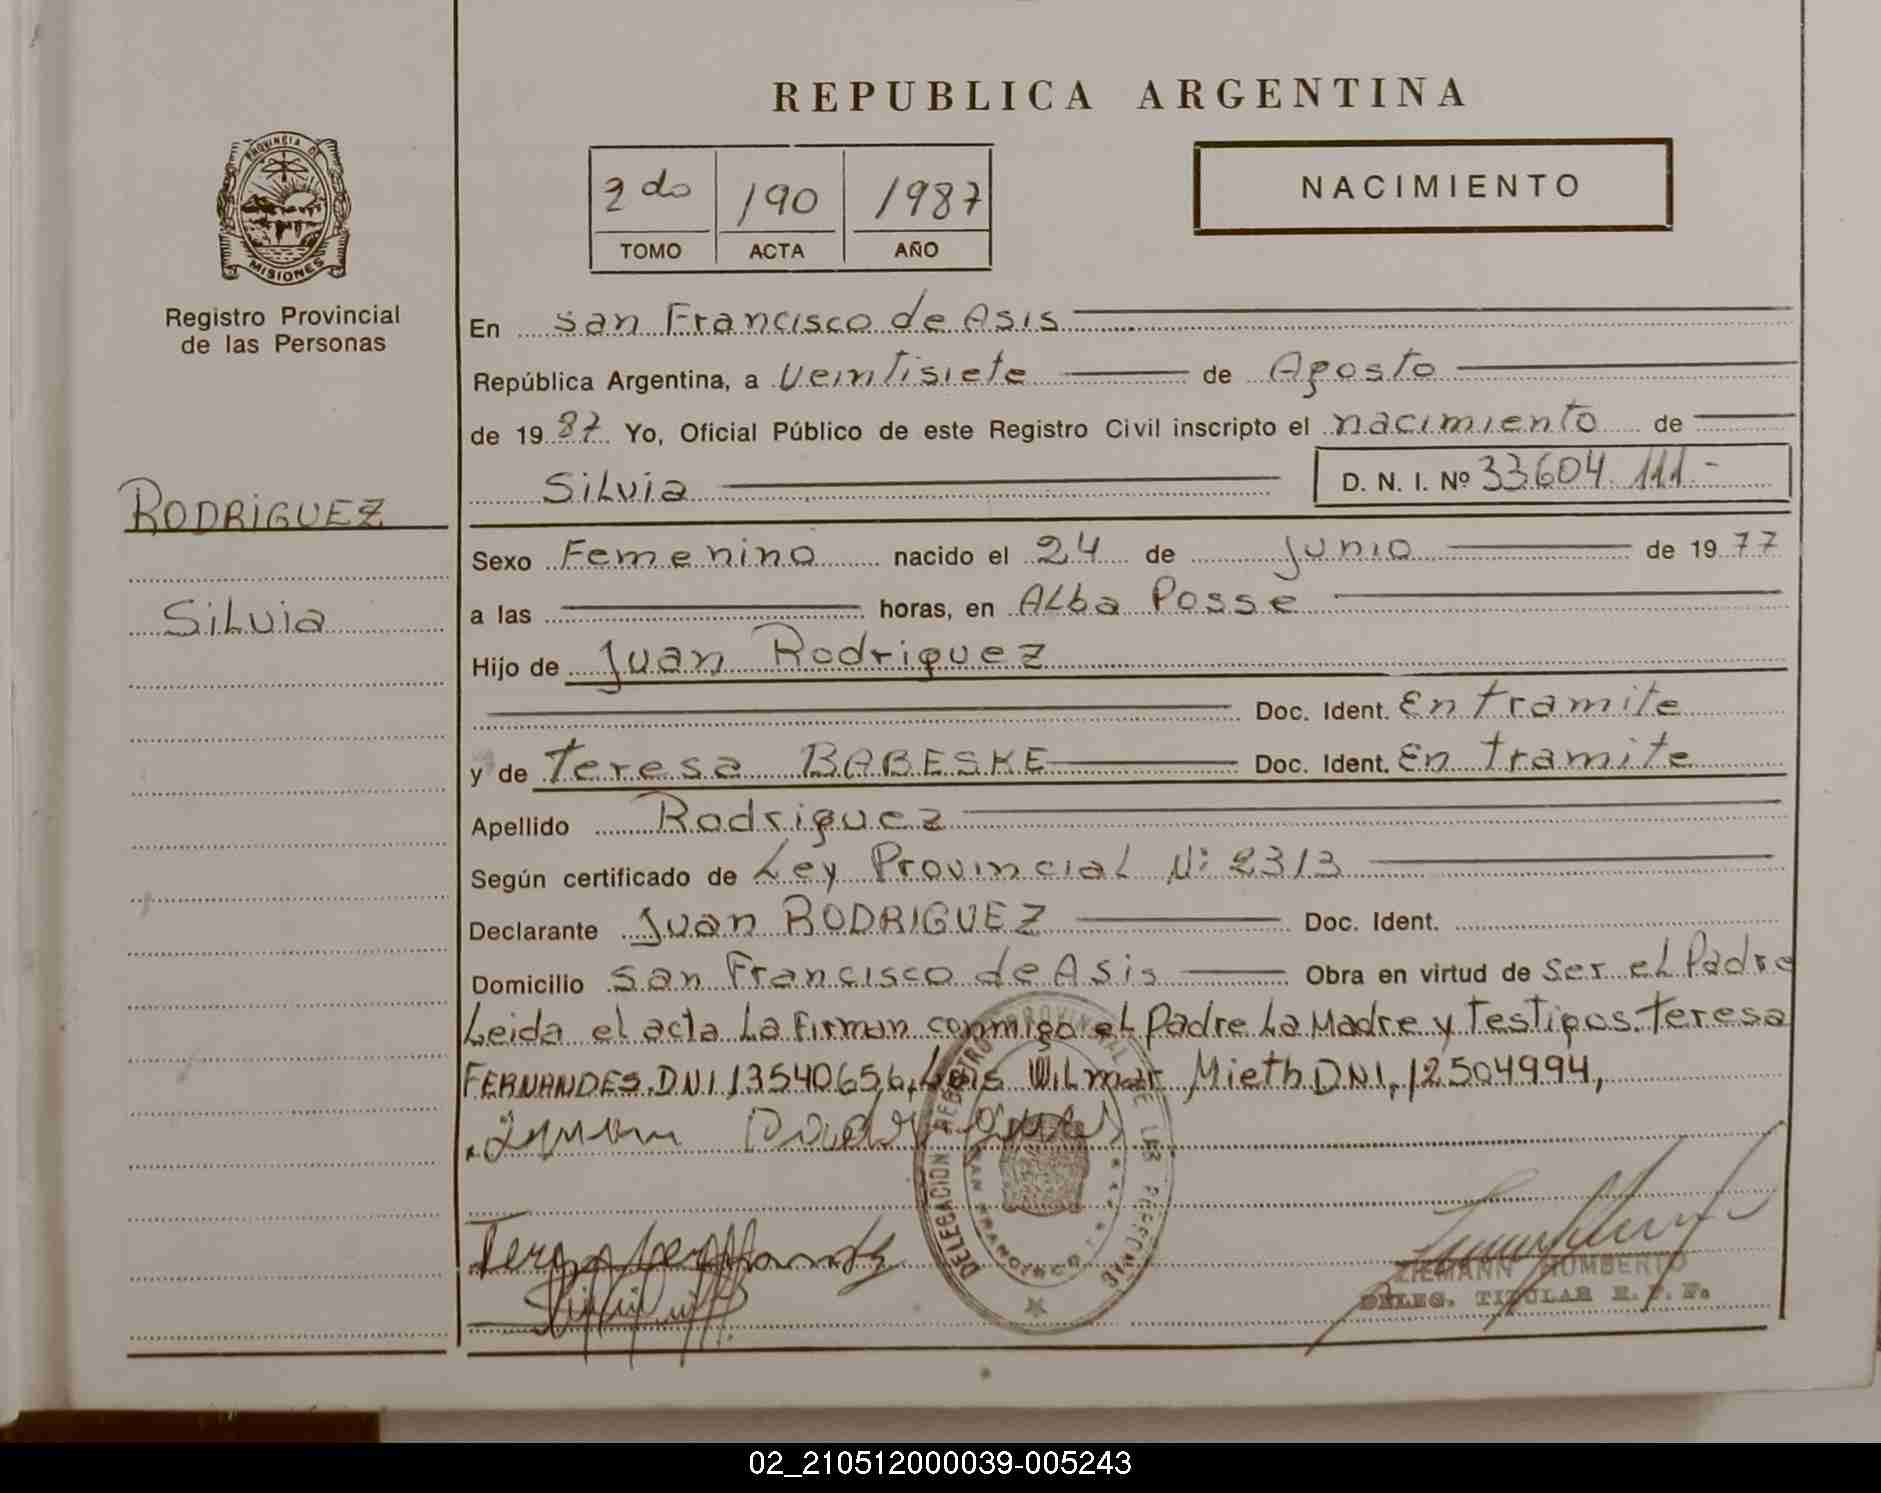 REPUBLICA ARGENTINA
PROVINCIA DE
MISIONES
Registro Provincial
de las Personas
2do 190 1987
TOMO ACTA AÑO
NACIMIENTO
RODRIGUEZ
Silvia
En San Francisco de Asis
República Argentina, a Veintisiete de Agosto
de 1987 Yo, Oficial Público de este Registro Civil inscripto el nacimiento de
Silvia D. N. I. Nº 33604.111.-
Sexo Femenino nacido el 24 de Junio de 1977
a las horas, en Alba Posse
Hijo de Juan Rodriguez
Doc. Ident. En tramite
y de Teresa BABESKE Doc. Ident. En tramite
Apellido Rodriguez
Según certificado de Ley Provincial Nº 2313
Declarante Juan RODRIGUEZ Doc. Ident.
Domicilio San Francisco de Asis Obra en virtud de ser el Padre
Leida el acta La Firman conmigo el Padre La Madre y Testigos. Teresa
FERNANDES. DNI 13540656, Luis Wilmar Mieth DNI, 12504994,
DELEGACION REGISTRO PROVINCIAL DE LAS PERSONAS
SAN FRANCISCO
ZIEMANN HUMBERTO
DELEG. TITULAR R. P. P.
02_210512000039-005243